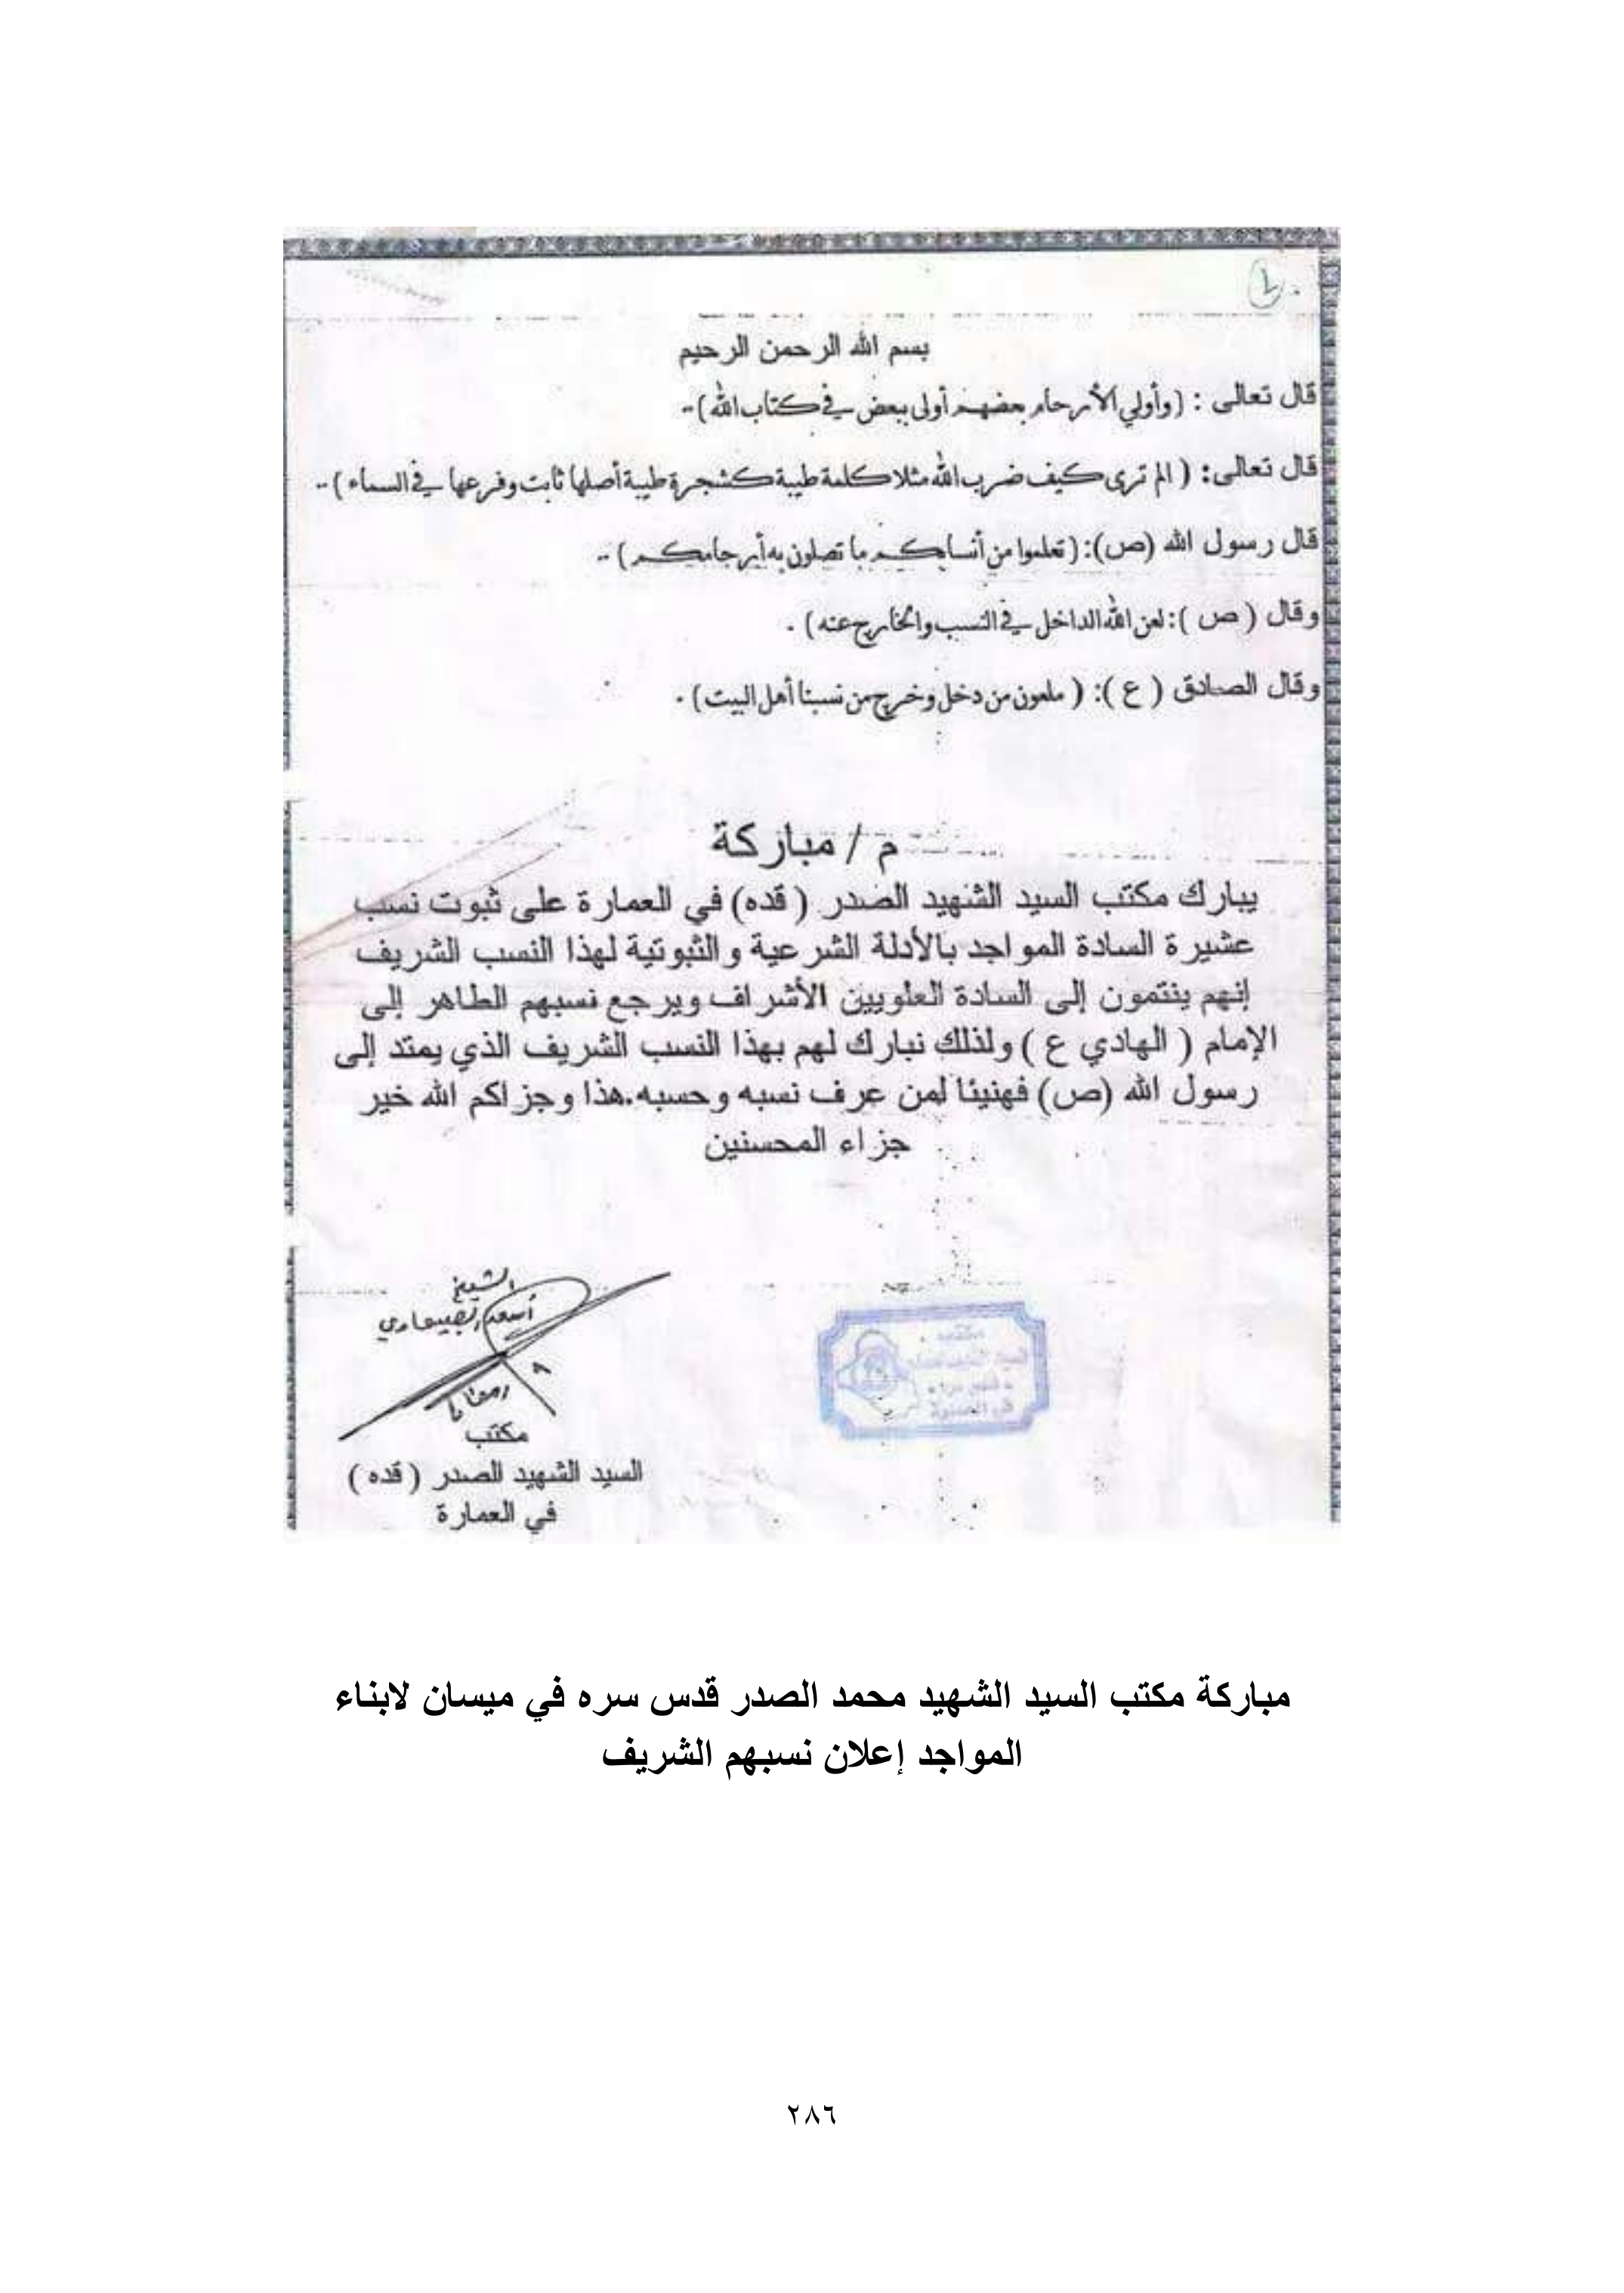 بسم الله الرحمن الرحيم
قال تعالى : (وأولي الأرحام بعضهم أولى ببعض في كتاب الله)..
قال تعالى: ( الم ترى كيف ضرب الله مثلا كلمة طيبة كشجرة طيبة أصلها ثابت وفرعها في السماء )..
قال رسول الله (ص): ( تعلموا من أنسابكم ما تصلون به أرحامكم )..
وقال ( ص ): لعن الله الداخل في النسب والخارج عنه ) .
وقال الصادق ( ع ): ( ملعون من دخل وخرج من نسبنا أهل البيت ) .
م / مباركة
يبارك مكتب السيد الشهيد الصدر ( قده) في العمارة على ثبوت نسب
عشيرة السادة المواجد بالأدلة الشرعية والثبوتية لهذا النسب الشريف
إنهم ينتمون إلى السادة العلويين الأشراف ويرجع نسبهم الطاهر إلى
الإمام ( الهادي ع ) ولذلك نبارك لهم بهذا النسب الشريف الذي يمتد إلى
رسول الله (ص) فهنيئا لمن عرف نسبه وحسبه.هذا وجزاكم الله خير
جزاء المحسنين
الشيخ
أسعد
مكتب
السيد الشهيد الصدر ( قده )
في العمارة
مباركة مكتب السيد الشهيد محمد الصدر قدس سره في ميسان لابناء
المواجد إعلان نسبهم الشريف
٢٨٦